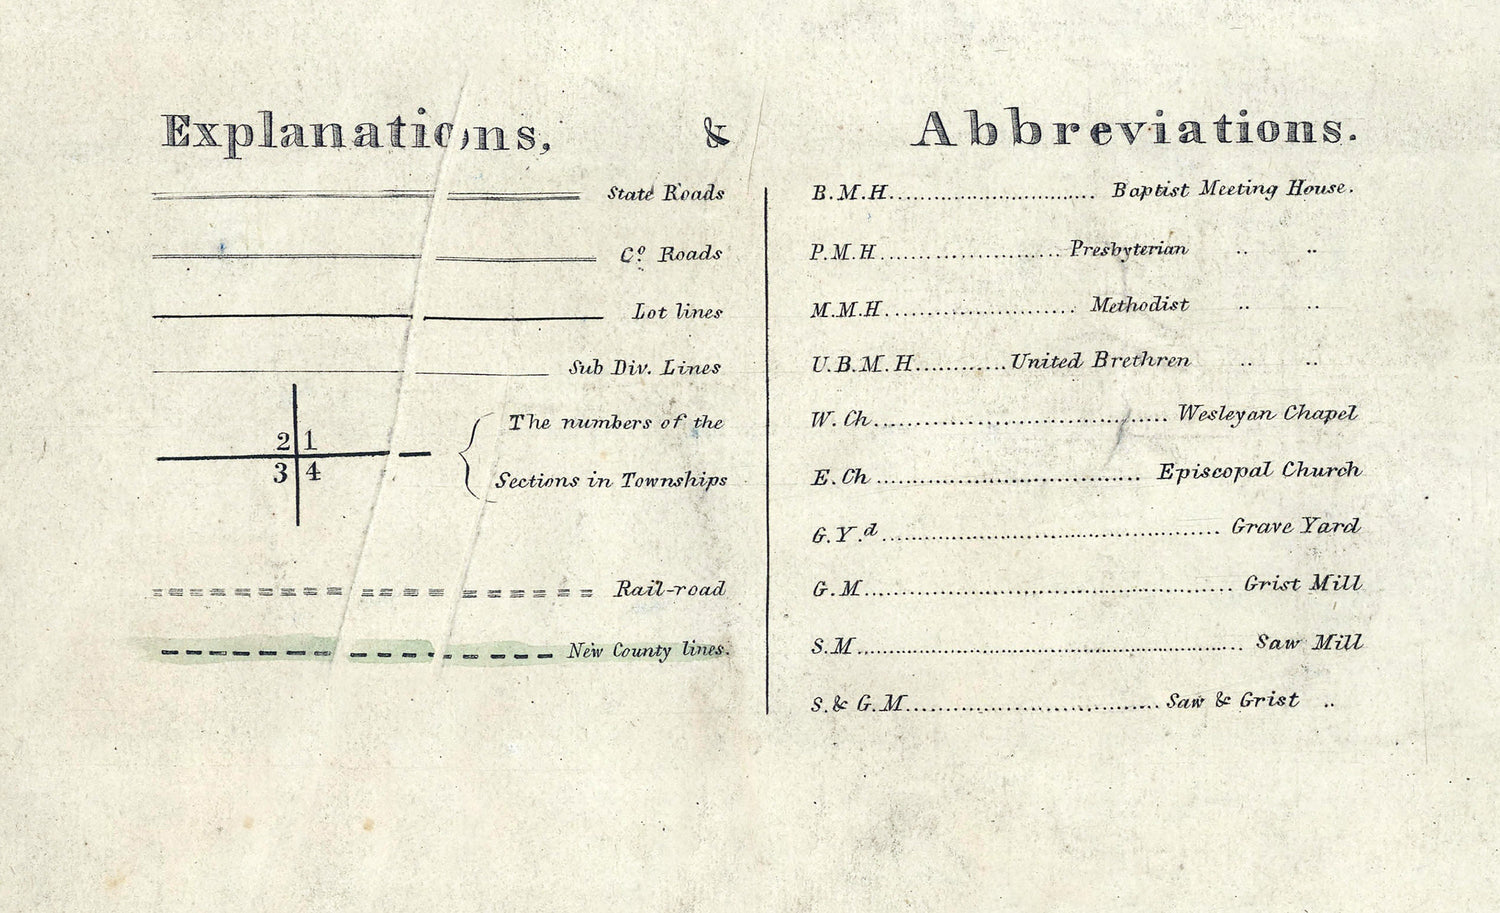 Explanations, & Abbreviations.
State Roads
Cº Roads
Lot lines
Sub Div. Lines
2 1
3 4
The numbers of the
Sections in Townships
Rail-road
New County lines.
B.M.H............................... Baptist Meeting House.
P.M.H........................... Presbyterian .. ..
M.M.H............................ Methodist .. ..
U.B.M.H............ United Brethren .. ..
W.Ch............................................ Wesleyan Chapel
E.Ch........................................ Episcopal Church
G.Y.d.................................................. Grave Yard
G.M...................................................... Grist Mill
S.M......................................................... Saw Mill
S.& G.M..................................... Saw & Grist ..